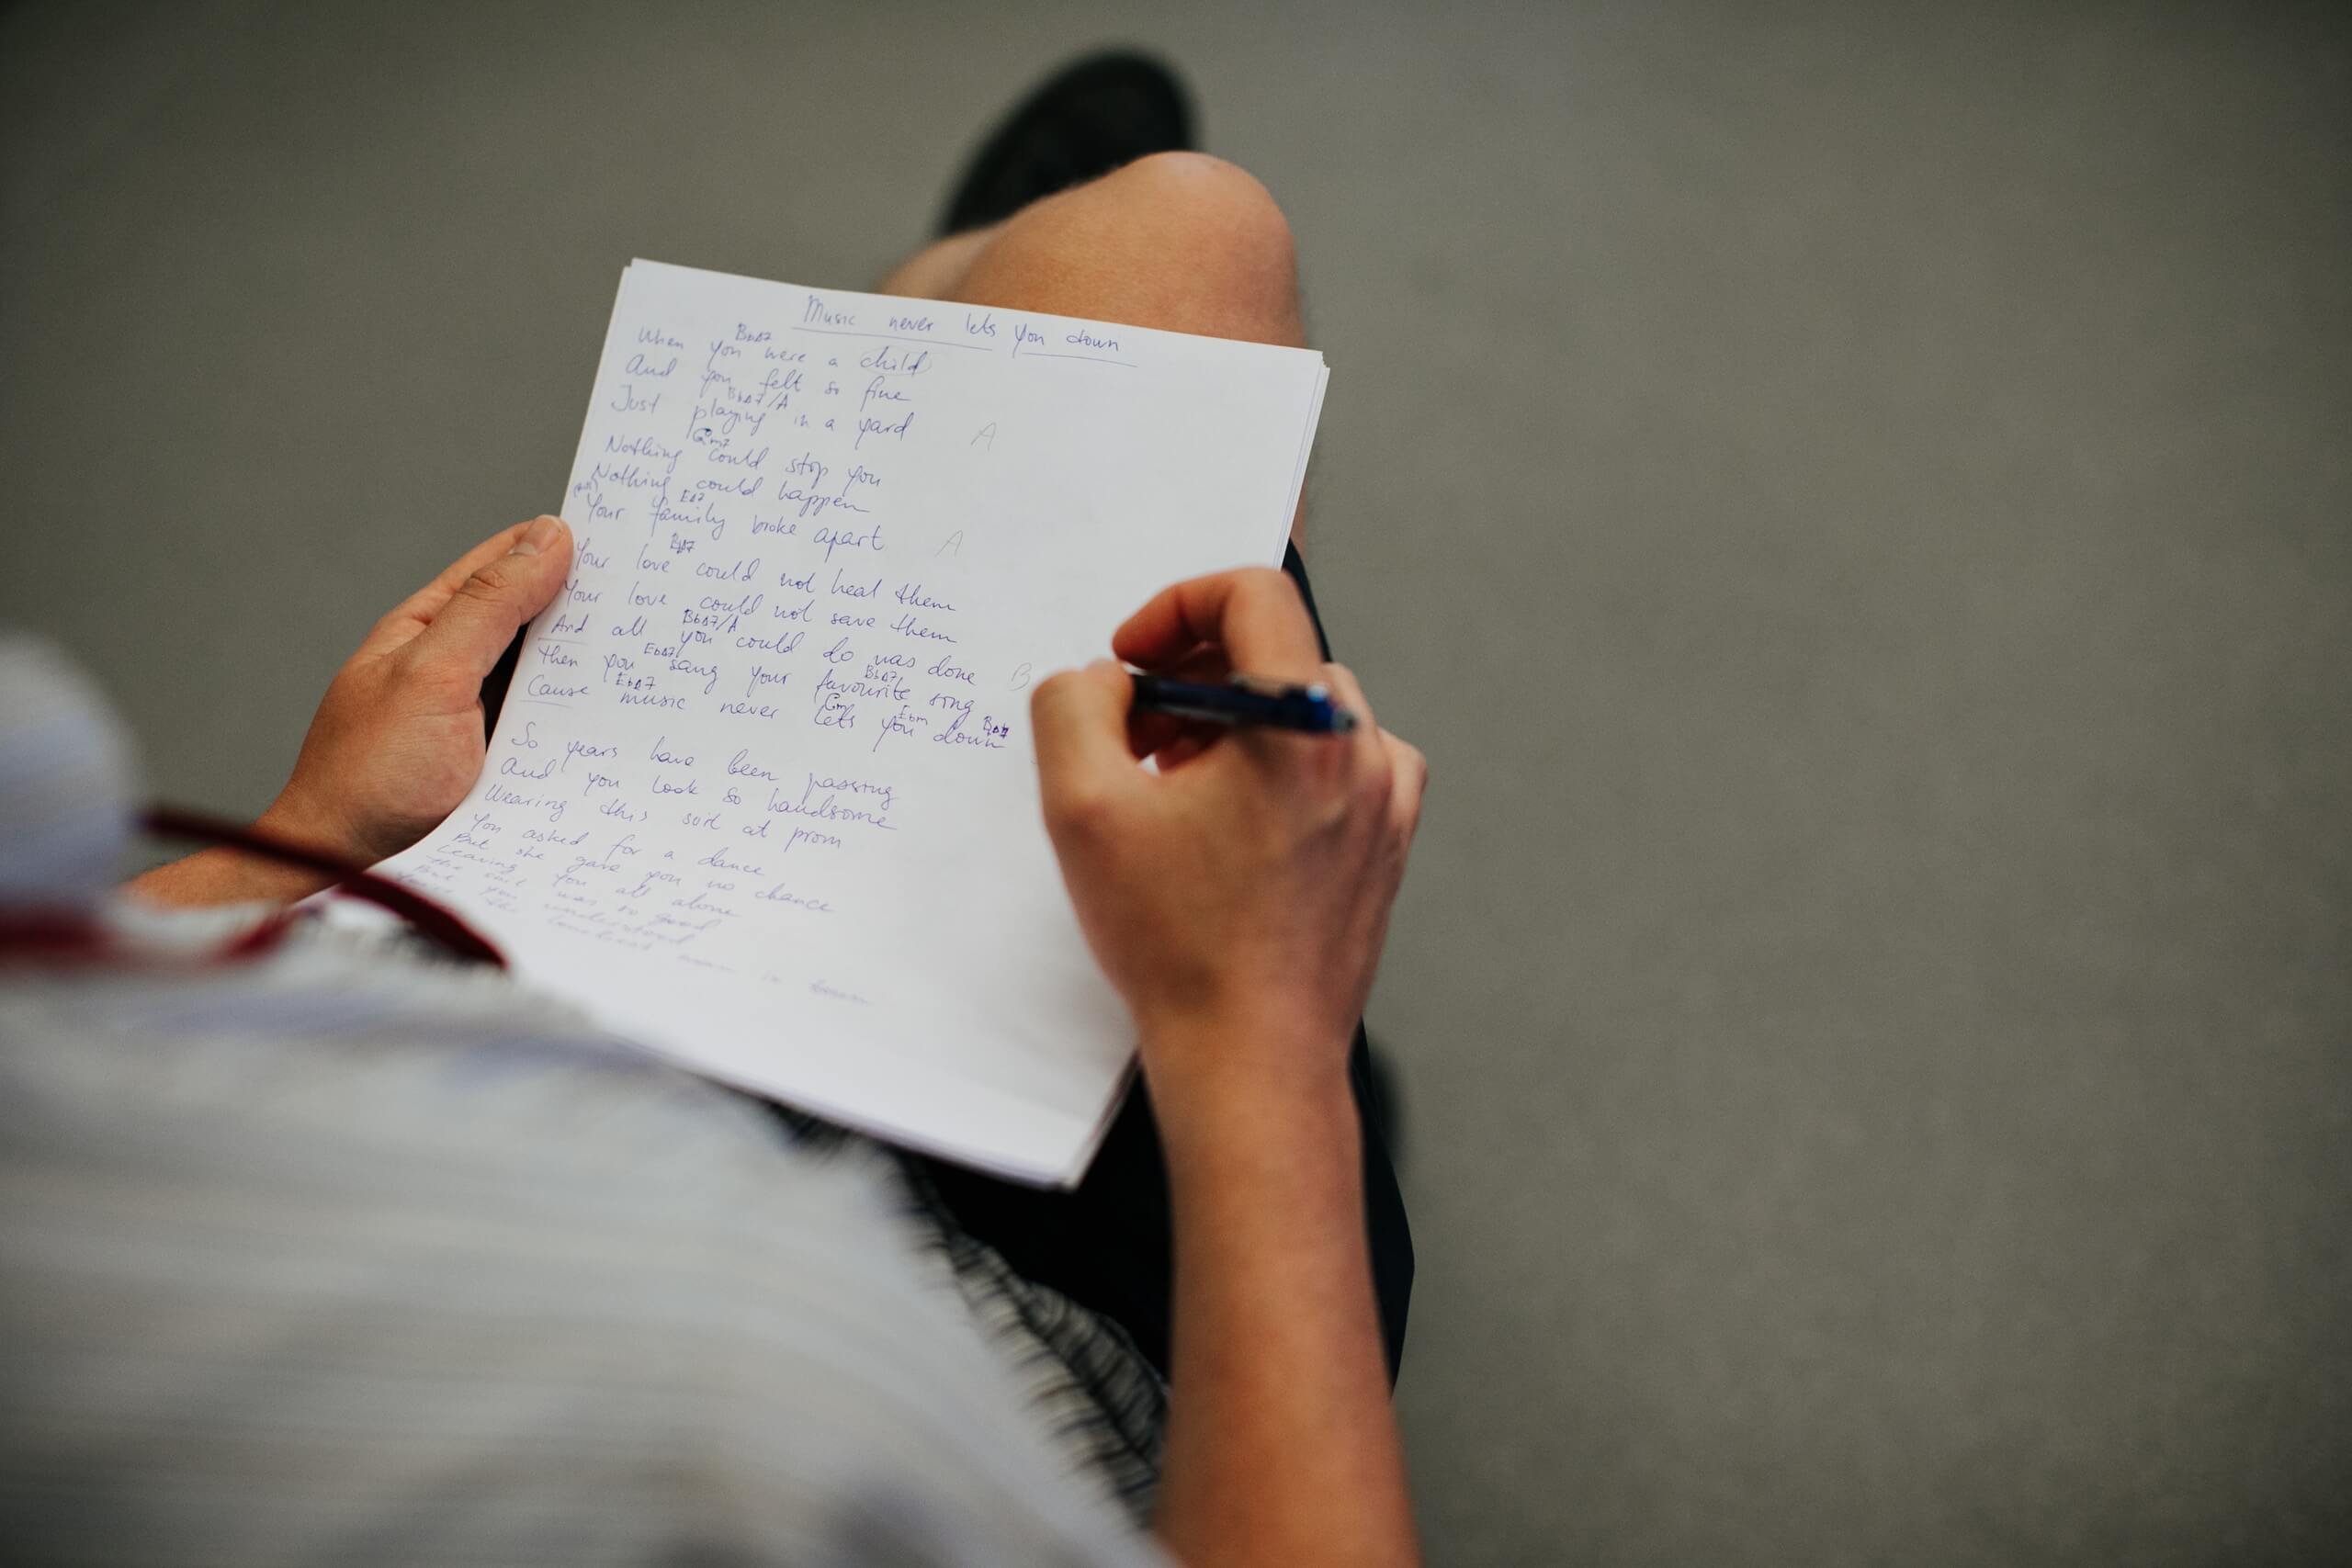 Music never lets you down
BbΔ7
When you were a child
And you felt so fine
BbΔ7/A
Just playing in a yard A
Gm7
Nothing could stop you
Nothing could happen
EΔ7
Your family broke apart A
BbΔ7
Your love could not heal them
Your love could not save them
BbΔ7/A
And all you could do was done B
EbΔ7 BbΔ7
then you sang your favourite song
EbΔ7 Cm Ebm BbΔ7
Cause music never lets you down
So years have been passing
And you look so handsome
Wearing this suit at prom
You asked for a dance
But she gave you no chance
Leaving you all alone
was so good
But you understood
in town